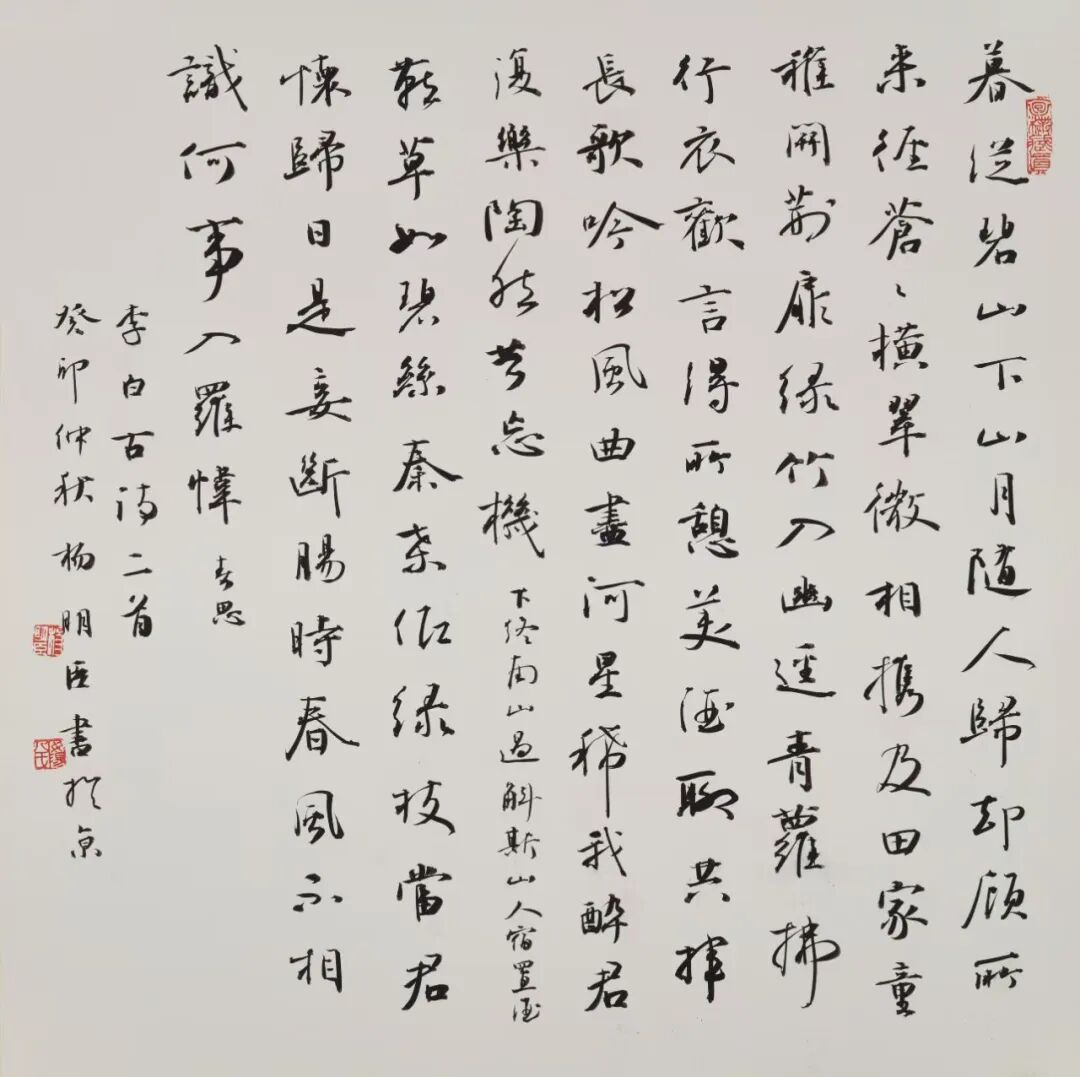 暮從碧山下山月隨人歸却顧所
来徑蒼〻橫翠微相攜及田家童
稚開荆扉緑竹入幽逕青蘿拂
行衣歡言得所憩美酒聊共揮
長歌吟松風曲盡河星稀我醉君
復樂陶然共忘機 下終南山過斛斯山人宿置酒
燕草如碧絲秦桑低緑枝當君
懷歸日是妾斷腸時春風不相
識何事入羅幃 春思
李白古詩二首
癸卯仲秋楊明臣書於京